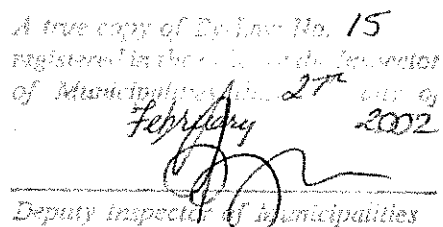 A true copy of By-Law No. 15
registered in the office of the Inspector
of Municipalities this day of
February 2002
Deputy Inspector of Municipalities